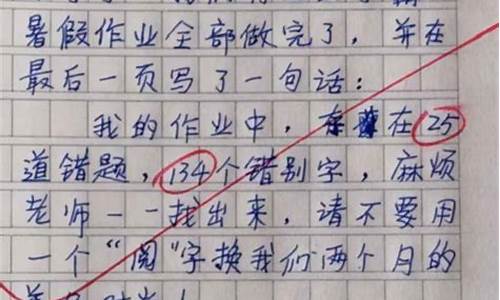 暑假作业全部做完了，并在
最后一页写了一句话：
我的作业中，存在25
道错题，134个错别字，麻烦
老师一一找出来，请不要用
一个“阅”字换我们两个月的